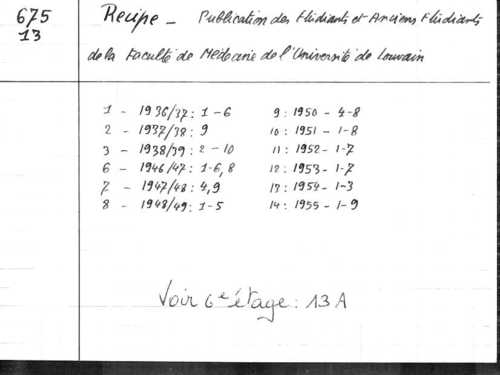 675
13
Recipe - Publication des Etudiants et Anciens Etudiants
de la Faculté de Médecine de l'Université de Louvain
1 - 1936/37: 1-6
2 - 1937/38: 9
3 - 1938/39: 2-10
6 - 1946/47: 1-6, 8
7 - 1947/48: 4,9
8 - 1948/49: 1-5
9: 1950 - 4-8
10: 1951 - 1-8
11: 1952 - 1-7
12: 1953 - 1-7
13: 1954 - 1-3
14: 1955 - 1-9
Voir 6e étage: 13A